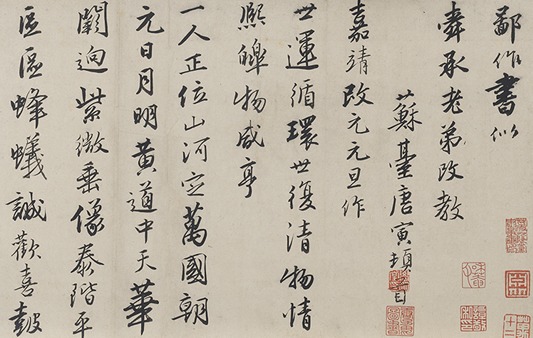 鄙作書似
舜承老弟改教
蘇臺唐寅頓首
嘉靖改元元旦作
世運循環世復清物情
熙皞物咸亨
一人正位山河定萬國朝
元日月明黃道中天華
闕迥紫微垂像泰階平
區區蜂蟻誠歡喜皷